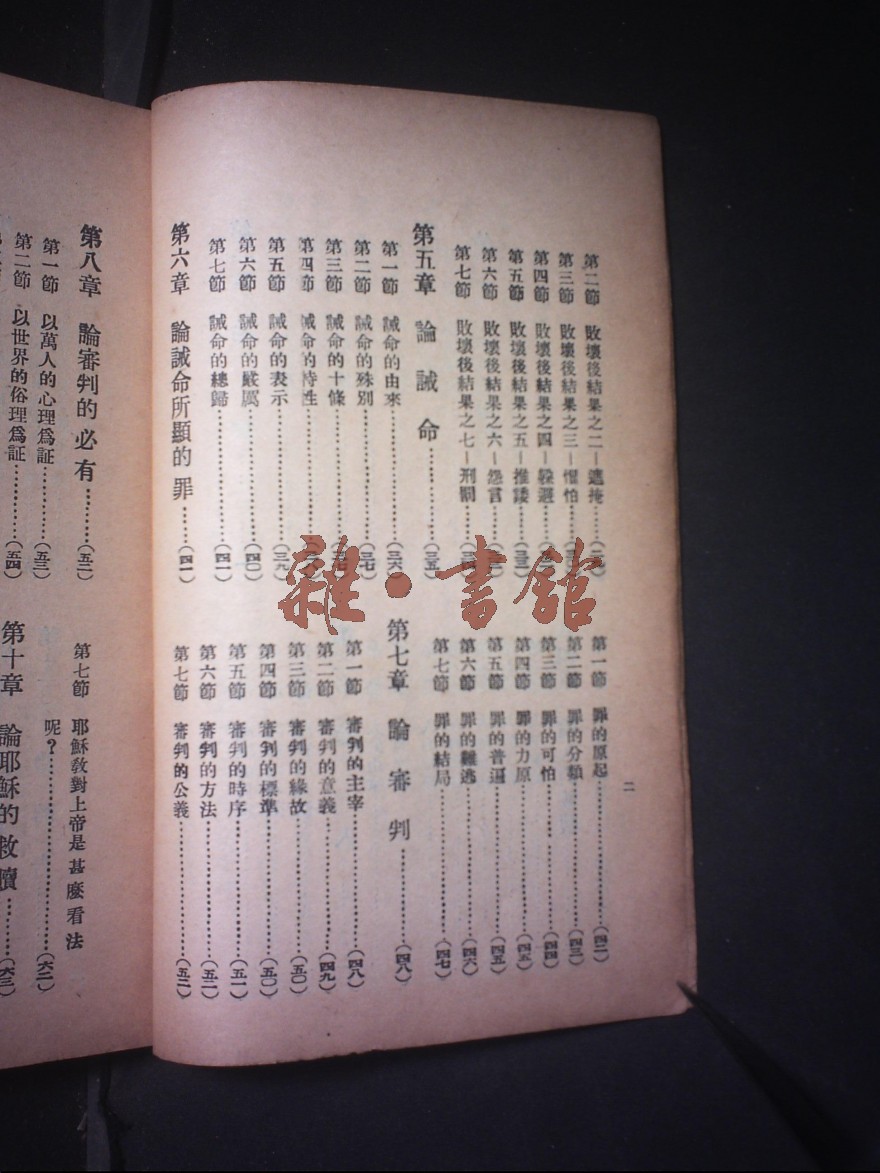 第二節 敗壞後結果之二－遮掩……(二九)
第三節 敗壞後結果之三－懼怕……
第四節 敗壞後結果之四－躱避……
第五節 敗壞後結果之五－推諉……(三二)
第六節 敗壞後結果之六－怨言……
第七節 敗壞後結果之七－刑罰……(三四)
第五章 論誡命……(三五)
第一節 誡命的由來……(三六)
第二節 誡命的殊別……(三七)
第三節 誡命的十條……
第四節 誡命的特性……
第五節 誡命的表示……(三九)
第六節 誡命的嚴厲……(四〇)
第七節 誡命的總歸……(四一)
第六章 論誡命所顯的罪……(四一)
第一節 罪的原起……(四二)
第二節 罪的分類……(四三)
第三節 罪的可怕……(四四)
第四節 罪的力原……(四五)
第五節 罪的普遍……(四五)
第六節 罪的難逃……(四六)
第七節 罪的結局……(四七)
第七章 論審判……(四八)
第一節 審判的主宰……(四八)
第二節 審判的意義……(四九)
第三節 審判的緣故……(五〇)
第四節 審判的標準……(五〇)
第五節 審判的時序……(五一)
第六節 審判的方法……(五二)
第七節 審判的公義……(五二)
二
雜·書館
第八章 論審判的必有……(五二)
第一節 以萬人的心理爲証……(五三)
第二節 以世界的俗理爲証……(五四)
第七節 耶穌敎對上帝是甚麼看法
呢？……(六二)
第十章 論耶穌的救贖……(六三)